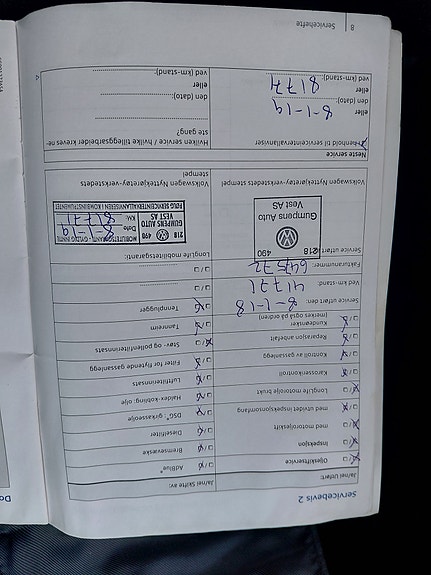 Servicebevis 2
Ja/nei Utført:
Oljeskiftservice
Inspeksjon
med motoroljeskift
med utvidet inspeksjonsomfang
LongLife motorolje brukt
Karosserikontroll
Kontroll av gassanlegg
Reparasjon anbefalt
Kundeønsker
(merkes også på ordren)
Service utført den: 8-1-18
Ved km-stand: 41771
Fakturanummer:
Service utført av:
218 490
Gumpens Auto
Vest AS
Volkswagen Nyttekjøretøy-verkstedets stempel
Ja/nei Skifte av:
AdBlue®
Bremsevæske
Dieselfilter
DSG®, girkasseolje
Haldex-kobling, olje
Luftfilterinnsats
Filter for flytende gassanlegg
Støv- og pollenfilterinnsats
Tannreim
Tennplugger
LongLife mobilitetsgaranti:
MOBILITETSGARANTI - GYLDIG INNTIL
218 490
GUMPENS AUTO
VEST AS
Dato 8-1-19
KM. 81771
FØLG SERVICEINTERVALLANVISEREN I KOMBIINSTRUMENTET
Volkswagen Nyttekjøretøy-verkstedets
stempel
Neste service
I henhold til serviceintervallanviser
eller
den (dato): 8-1-19
eller
ved (km-stand): 81771
Hvilken service / hvilke tilleggsarbeider kreves ne-
ste gang?
den (dato):
eller
ved (km-stand):
8 Servicehefte